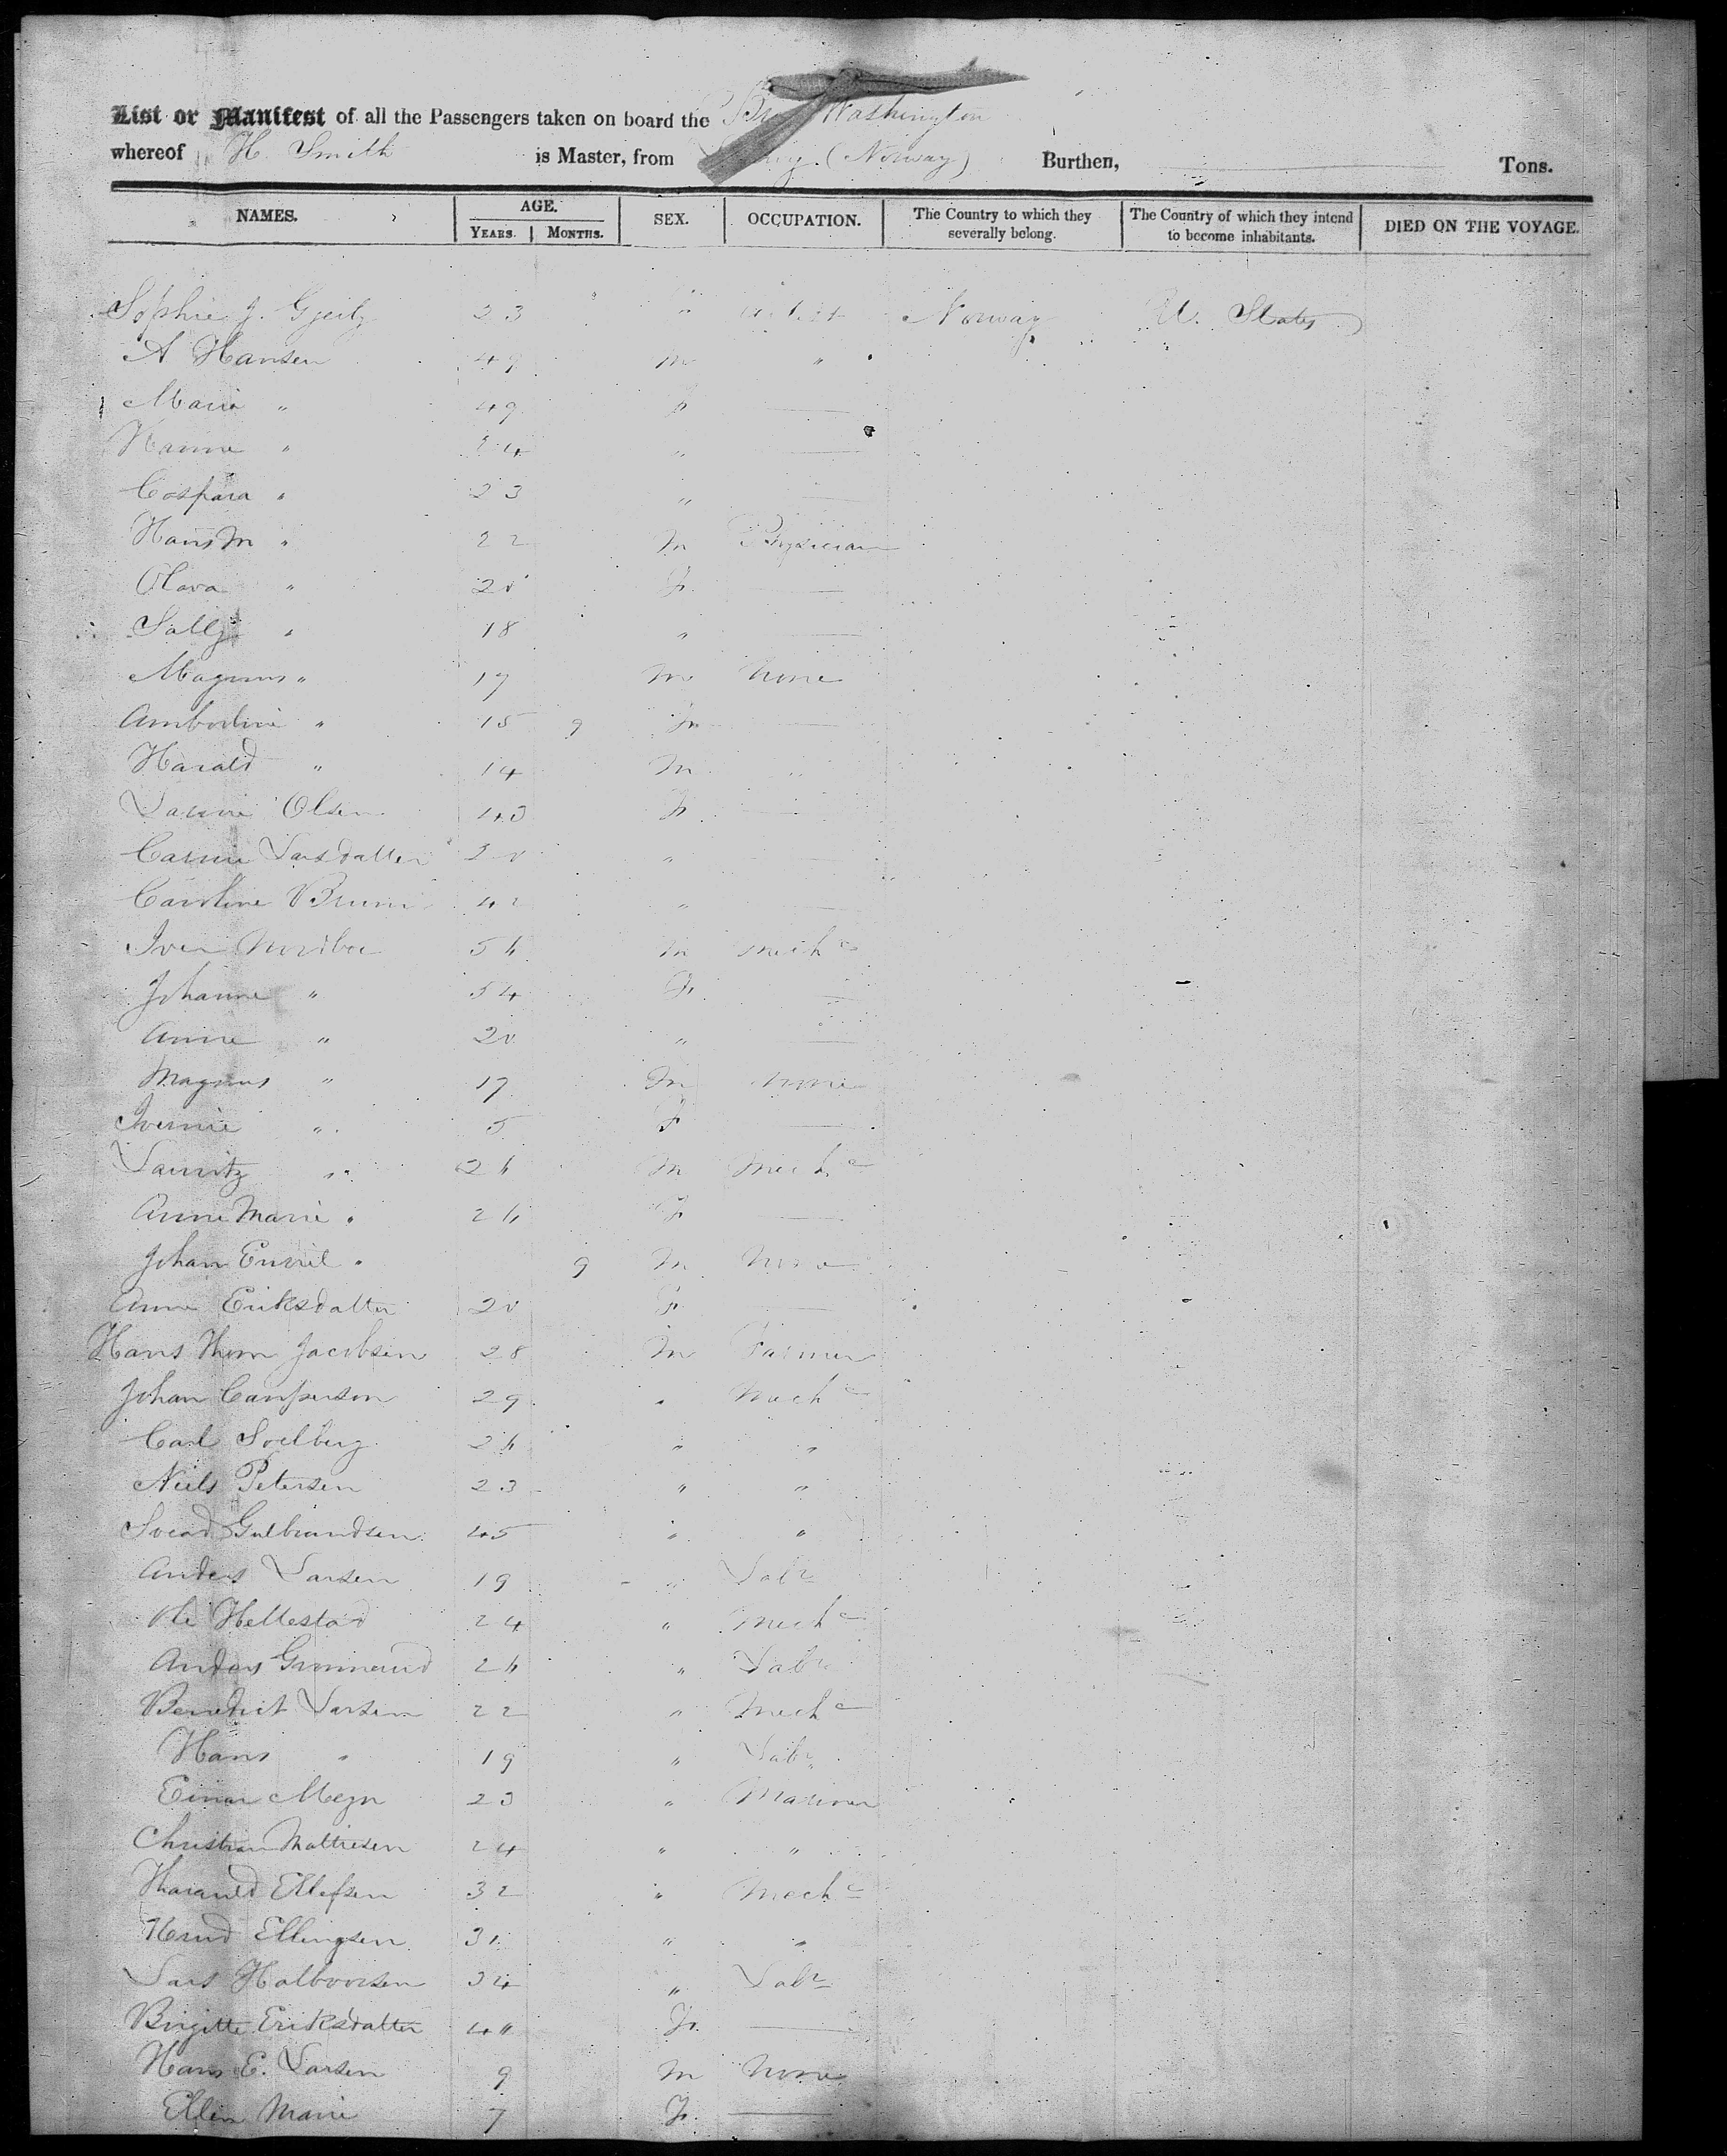 List or Manifest of all the Passengers taken on board the Washington
whereof H. Smith is Master, from (Norway) Burthen, Tons.
NAMES. AGE. SEX. OCCUPATION. The Country to which they severally belong. The Country of which they intend to become inhabitants. DIED ON THE VOYAGE.
YEARS. MONTHS.
Sophie J. 23 " Norway U. States
A Hansen 49 m "
Maria " 49 F
Hanne " 24 "
Caspara " 23 "
Hans M " 22 m Physician
Olava " 20 F
Sally " 18 "
Magnus " 17 m None
" 15 9 F
Harald " 14 m "
Olsen 43 F
Larsdatter 20 "
Caroline 42 "
Iver 56 m mechc
Johanne " 54 F
Anne " 20 "
Magnus " 17 m none
" 5 F
Lauritz " 26 m mechc
Anne Marie " 26 F
Johan " 9 m none
Anne Eriksdatter 20 F
Hans Thom Jacobsen 28 m Farmer
Johan 29 " mechc
Carl Soelberg 26 " "
Niels Petersen 23 " "
Gulbrandsen 45 " "
Anders Larsen 19 " Labr
Ole Hellestad 24 " mechc
Anders 26 " Labr
Benedict Larsen 22 " mechc
Hans " 19 " Labr
Einar 23 " Mariner
Christian Mathiesen 24 " "
Ellefsen 32 " mechc
Knud Ellingsen 31 " "
Lars Halvorsen 34 " Labr
Birgitte Eriksdatter F
Hans E. Larsen 9 m None
Ellen Marie 7 F